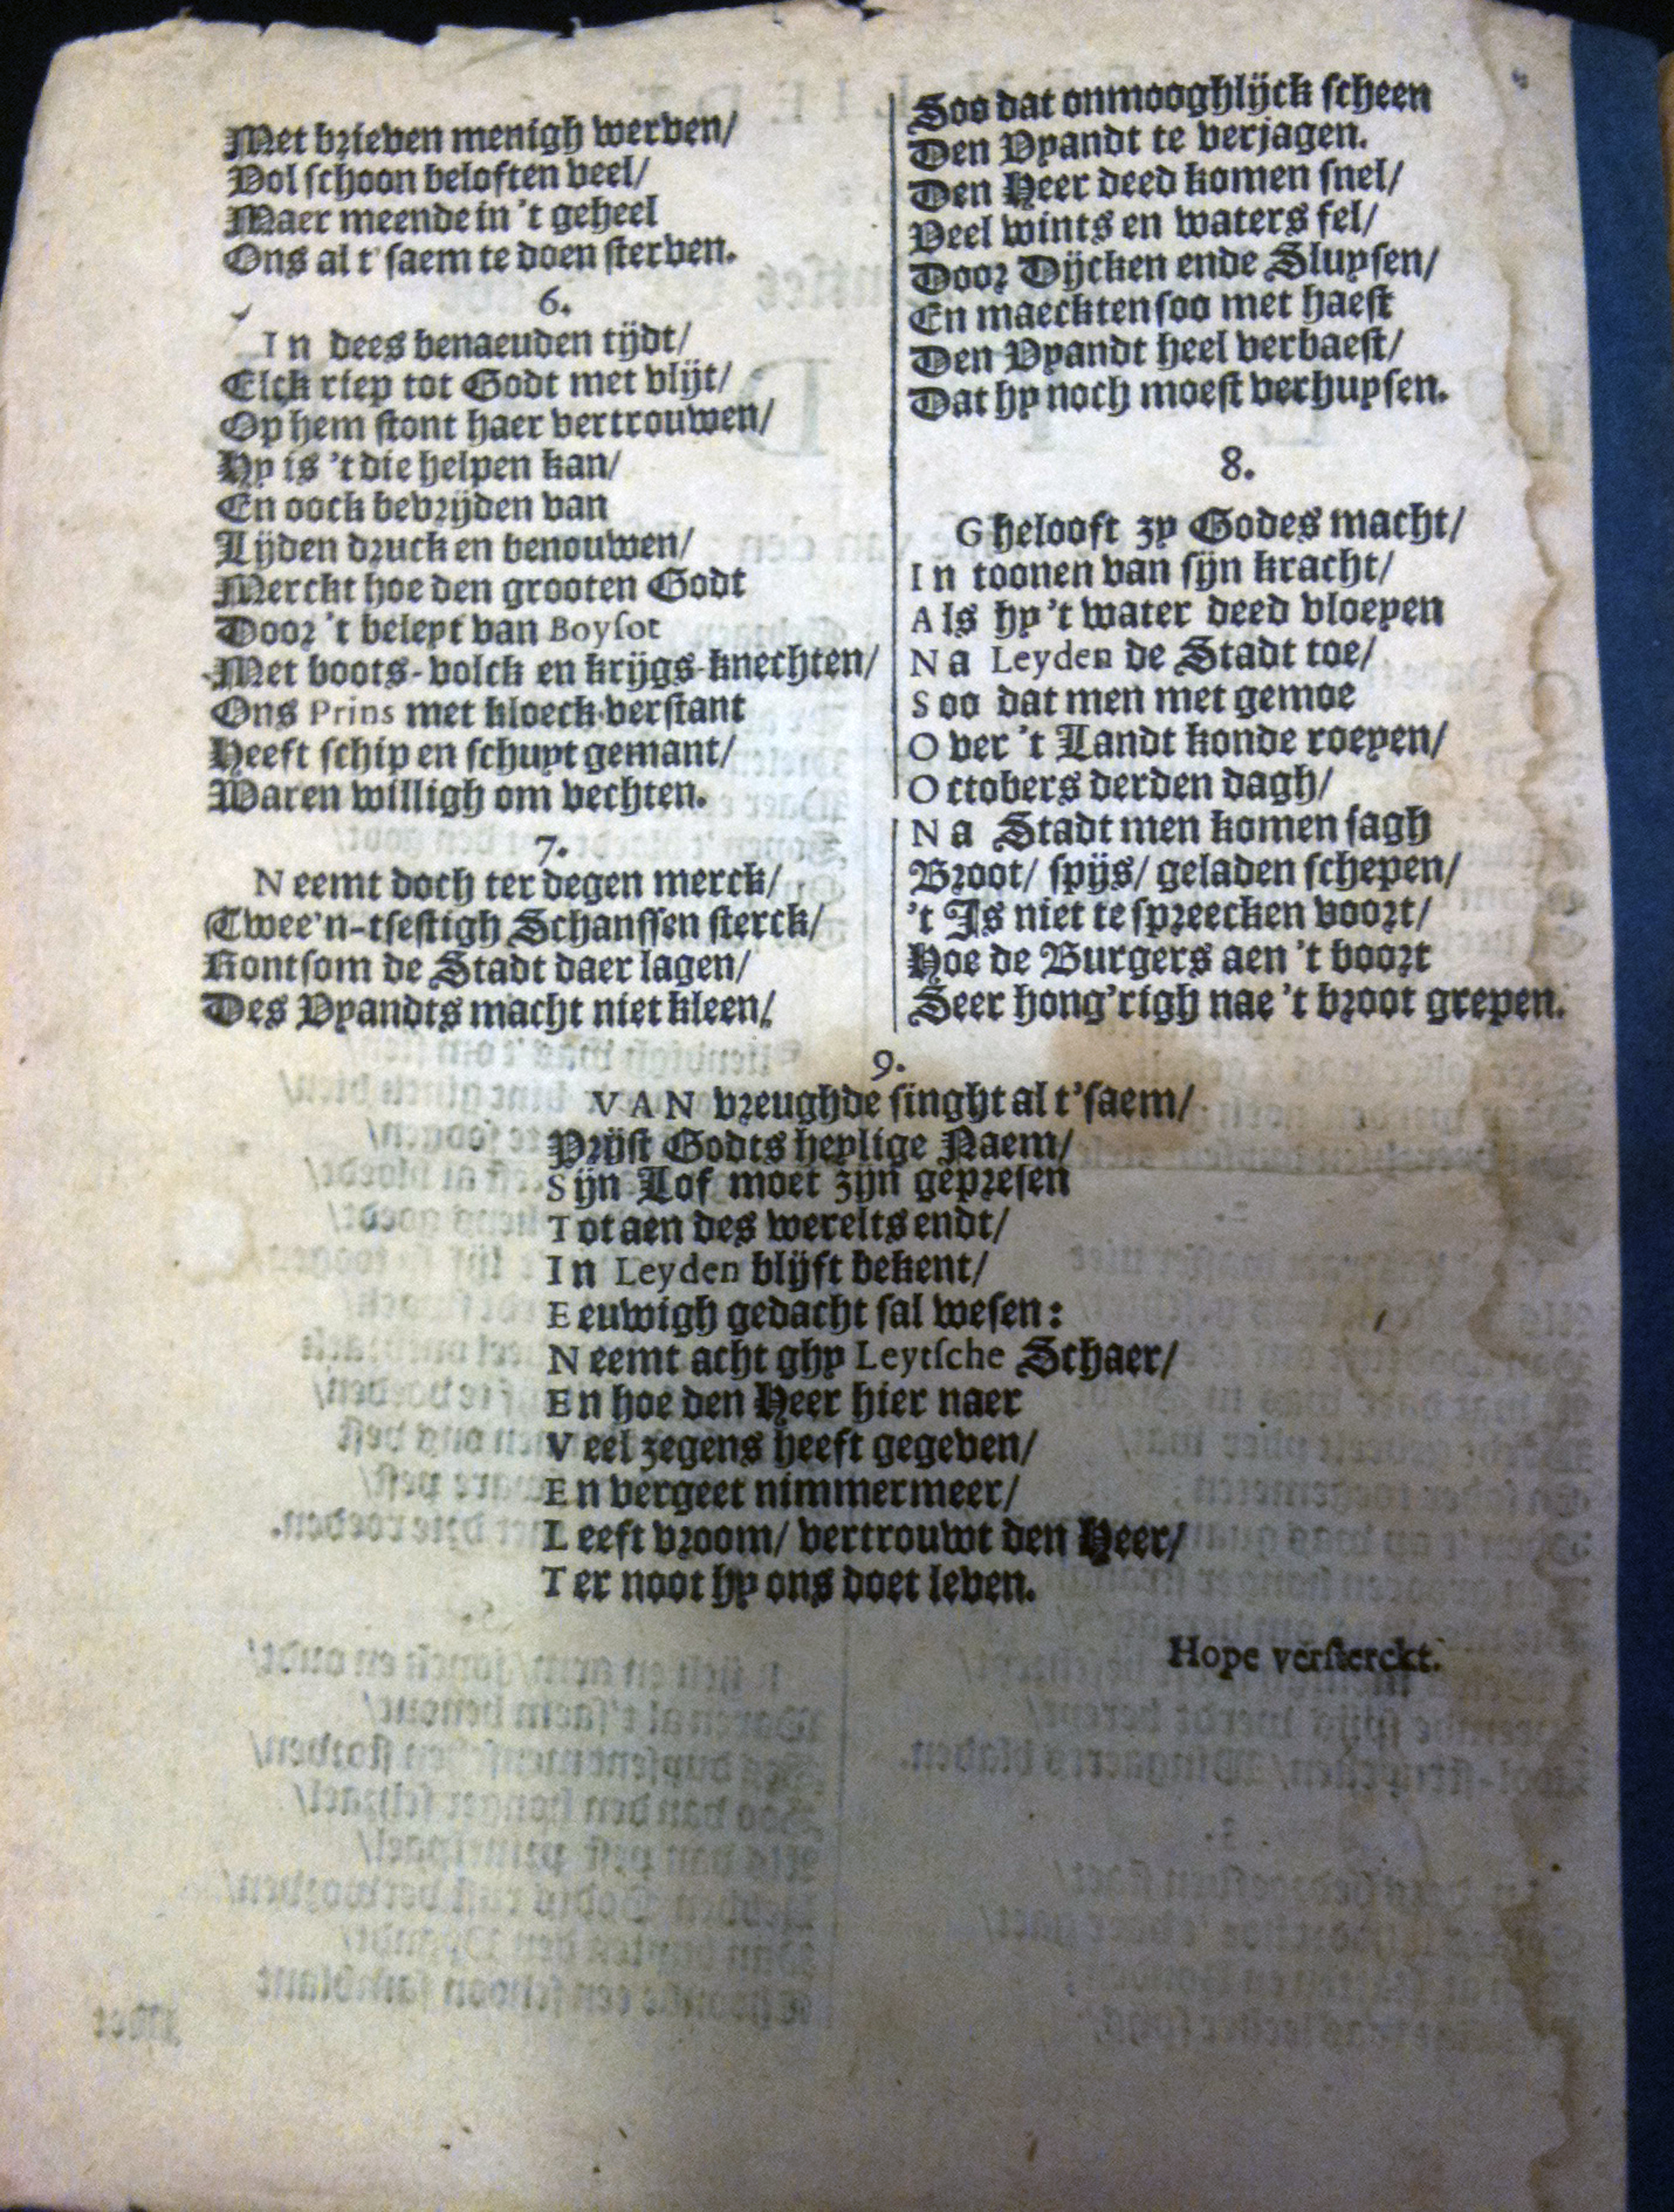 Met brieven menigh werven/
Vol schoon beloften veel/
Maer meende in 't geheel
Ons al t' saem te doen sterven.
6.
In dees benaeuden tijdt/
Elck riep tot Godt met vlijt/
Op hem stont haer vertrouwen/
Hy is 't die helpen kan/
En oock bevrijden van
Lijden druck en benouwen/
Merckt hoe den grooten Godt
Door 't beleyt van Boysot
Met boots-volck en krijgs-knechten/
Ons Prins met kloeck verstant
Heeft schip en schuyt gemant/
Waren willigh om vechten.
7.
Neemt doch ter degen merck/
Twee'n-tsestigh Schanssen sterck/
Rontsom de Stadt daer lagen/
Des Vyandts macht niet kleen/
Soo dat onmooghlijck scheen
Den Vyandt te verjagen.
Den Heer deed komen snel/
Veel wints en waters fel/
Door Dijcken ende Sluysen/
En maeckten soo met haest
Den Vyandt heel verbaest/
Dat hy noch moest verhuysen.
8.
Ghelooft zy Godes macht/
In toonen van sijn kracht/
Als hy 't water deed vloeyen
Na Leyden de Stadt toe/
Soo dat men met gemoe
Over 't Landt konde roeyen/
Octobers derden dagh/
Na Stadt men komen sagh
Broot/ spijs/ geladen schepen/
't Is niet te spreecken voort/
Hoe de Burgers aen 't boort
Seer hong'righ nae 't broot grepen.
9.
VAN vreughde singht al t'saem/
Prijst Godts heylige Naem/
Sijn Lof moet zijn gepresen
Tot aen des werelts endt/
In Leyden blijft bekent/
Eeuwigh gedacht sal wesen:
Neemt acht ghy Leytsche Schaer/
En hoe den Heer hier naer
Veel zegens heeft gegeven/
En vergeet nimmermeer/
Leeft vroom/ vertrouwt den Heer/
Ter noot hy ons doet leven.
Hope versterckt.